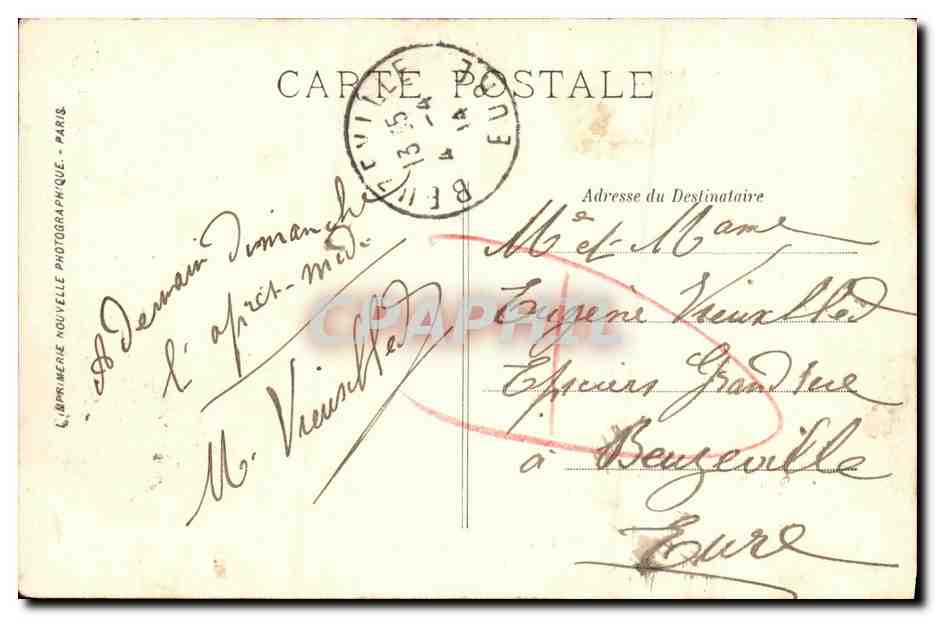 CARTE POSTALE
BEUZEVILLE
EURE
13 25
4 - 4
14
L'IMPRIMERIE NOUVELLE PHOTOGRAPHIQUE. - PARIS.
A demain Dimanche
l'apret-midi
M. Vieuxbled
Adresse du Destinataire
Mr et Mame
Eugene Vieuxbled
Epiciers Grand rue
à Beuzeville
Eure
CPAPHIL